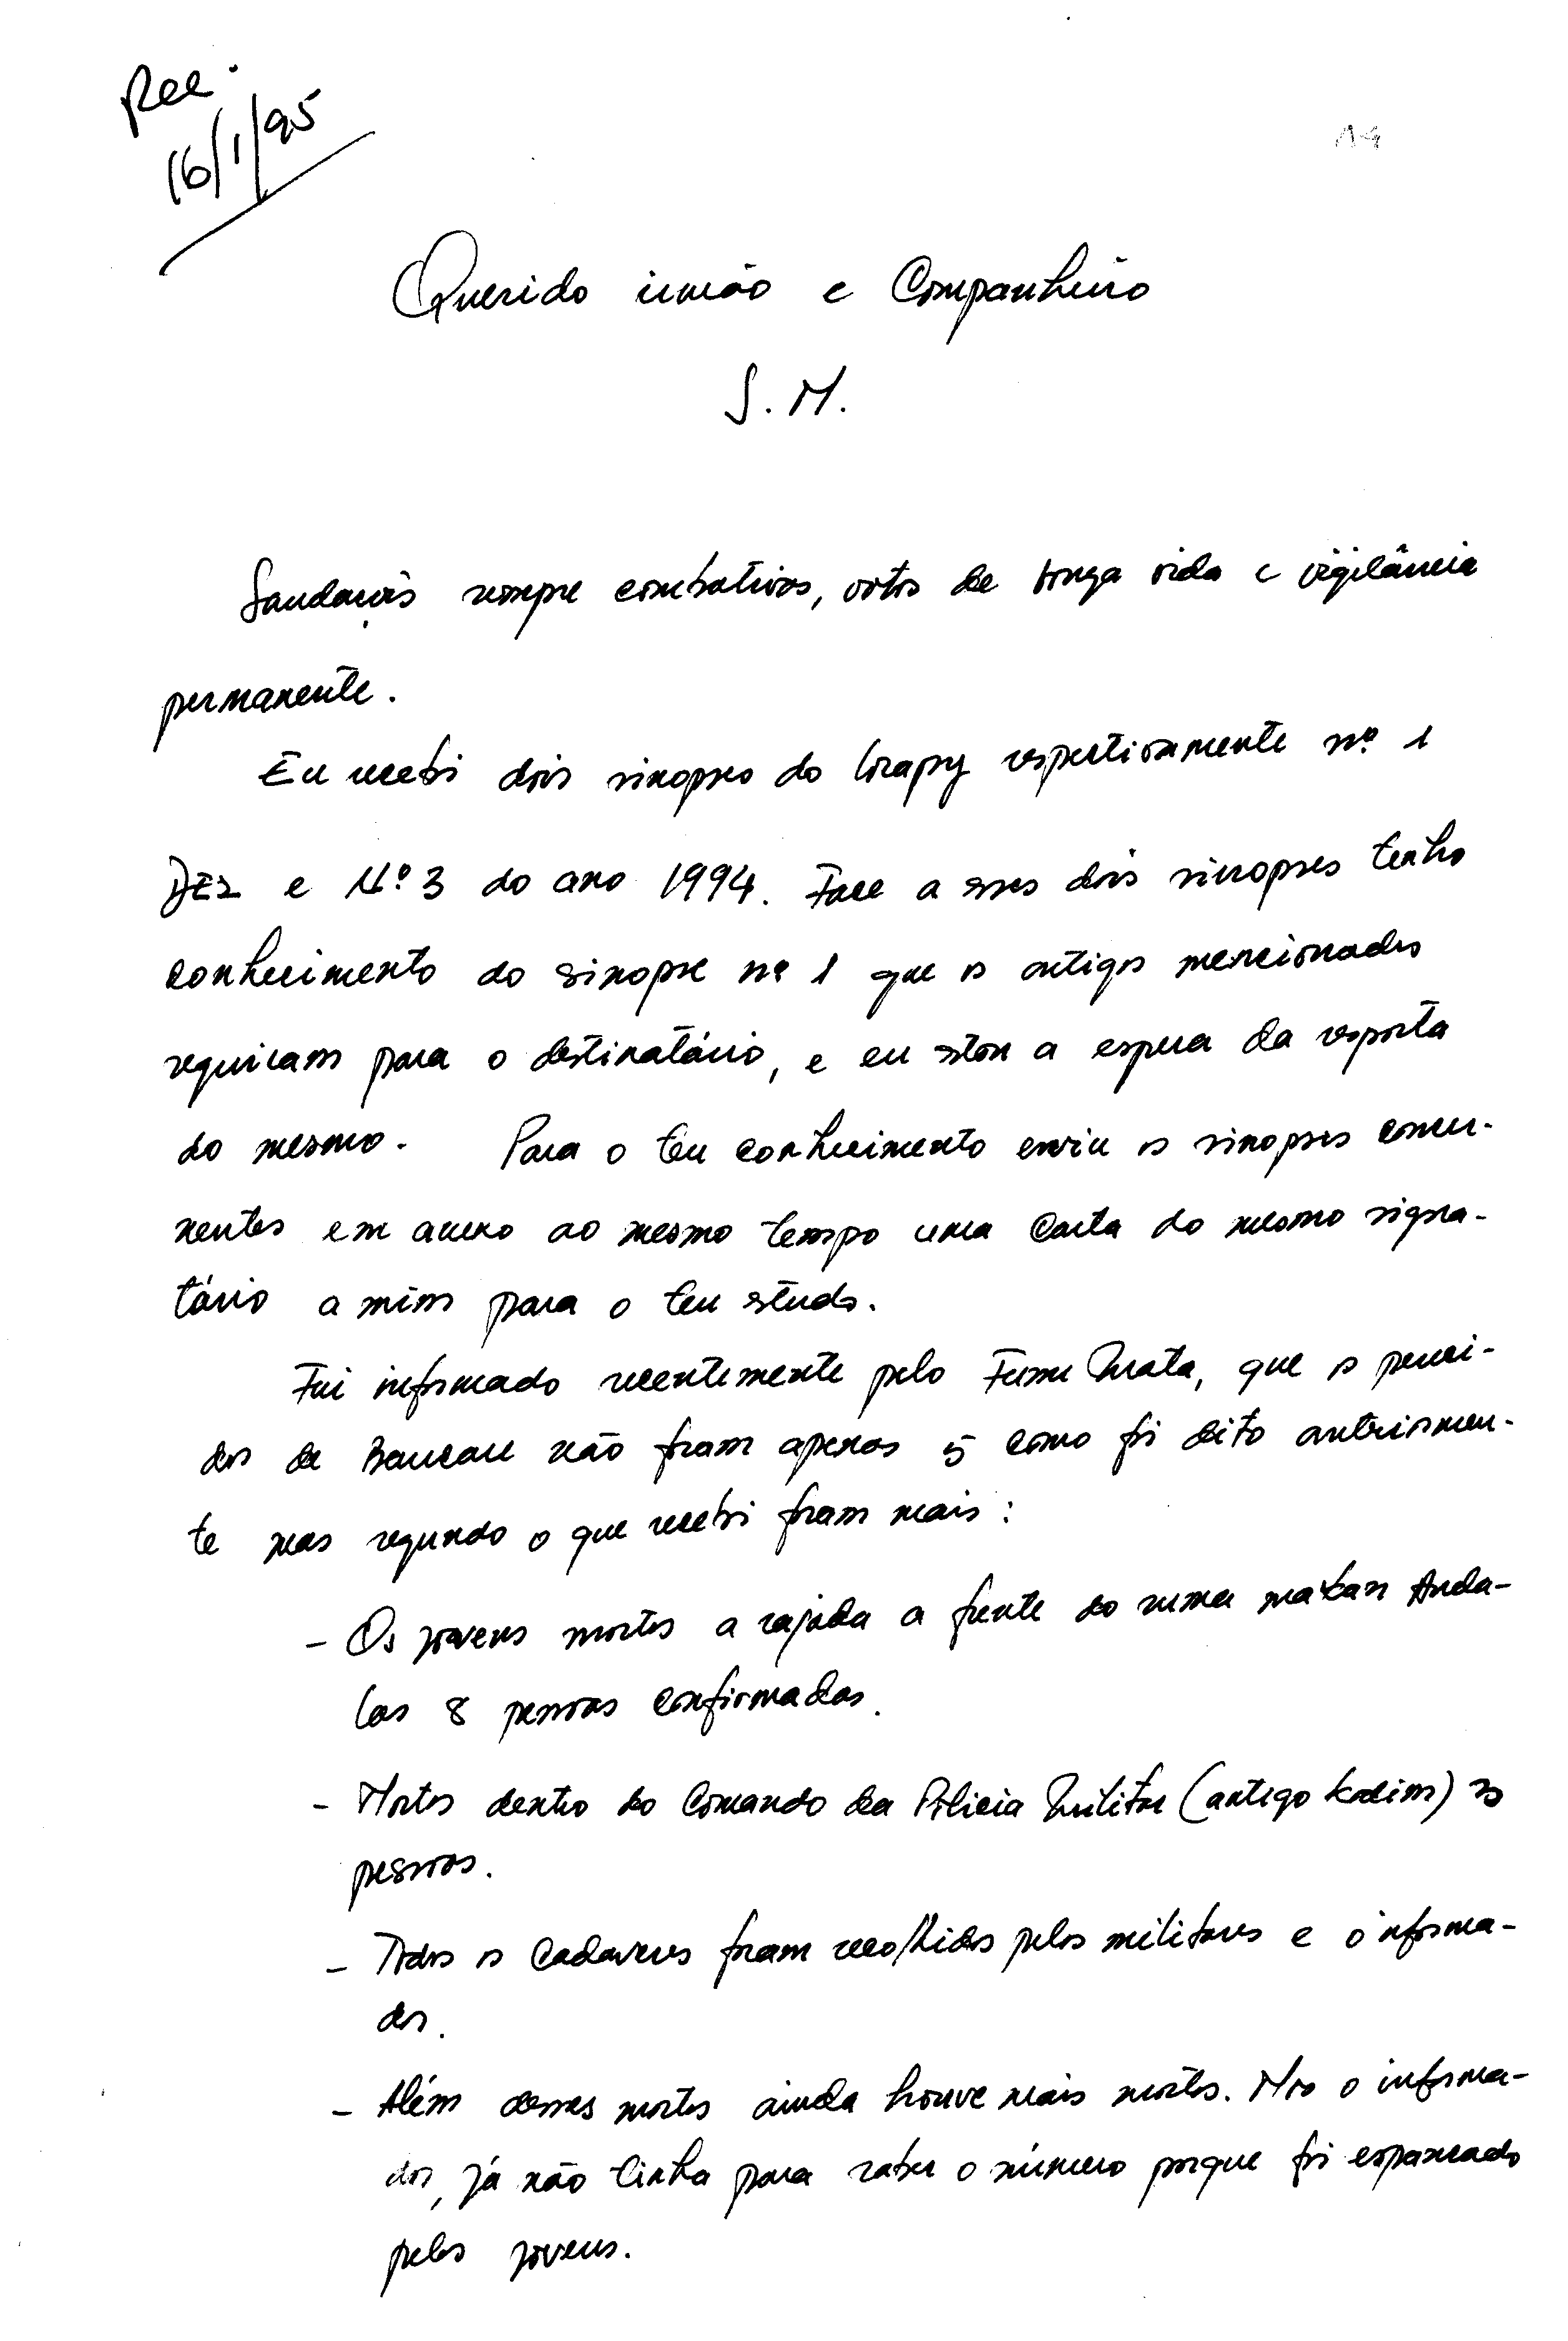 Rec.
16/1/95
19
Querido irmão e Companheiro
S. M.
Saudações sempre combativas, votos de longa vida e vigilância
permanente.
Eu recebi dois sinopses do respectivamente nº 1
DEZ e Nº 3 do ano 1994. Face a esses dois sinopses tenho
conhecimento do sinopse nº 1 que os artigos mencionados
seguiram para o destinatário, e eu estou a espera da resposta
do mesmo. Para o teu conhecimento envio os sinopses concer-
nentes em anexo ao mesmo tempo uma Carta do mesmo signa-
tário a mim para o teu estudo.
Fui informado recentemente pelo Mata, que os perci-
dos de Baucau não foram apenas 5 como foi dito anteriormen-
te mas segundo o que recebi foram mais:
- Os jovens mortos a rajada a frente do ruma makan Anda-
las 8 pessoas confirmadas.
- Mortos dentro do Comando da Policia Militar (antigo kodim)
pessoas.
- Todos os Cadaveres foram recolhidos pelos militares e informa-
dor.
- Além desses mortos ainda houve mais mortos. Mas o informa-
dor, já não tinha para saber o número porque foi espancado
pelos jovens.